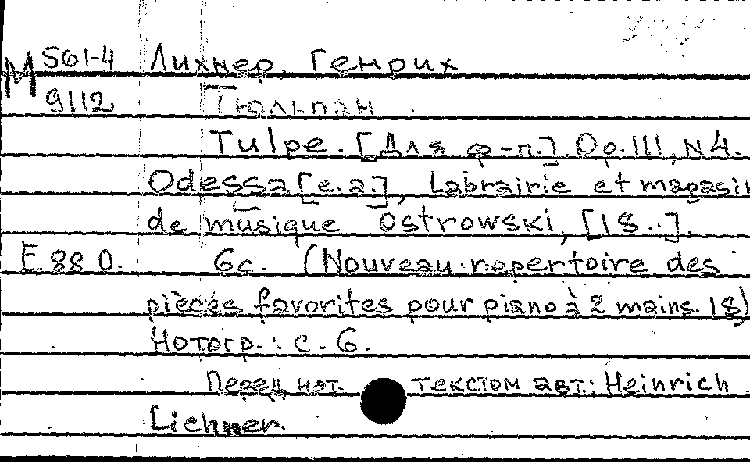 М 561-4 Лихнер, Генрих
9112 Тюльпан.
Tulpe. [Для ф-п.] Op.111, N4.
Odessa [e.a.], Labrairie et magasin
de musique Ostrowski, [18..].
E.88 0. 6c. (Nouveau repertoire des
pièces favorites pour piano à 2 mains. 18)
Нотогр.: с. 6.
Перед нот. текстом авт.: Heinrich
Lichner.